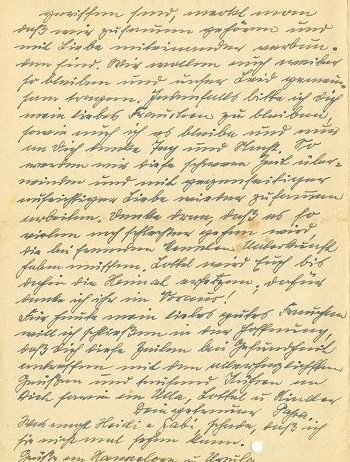 zerrissen sind, merkt man
daß wir zusammen gehören und
mit Liebe miteinander verbun-
den sind. Wir wollen auch weiter
so bleiben und unser Leid gemein-
sam tragen. Jedenfalls bitte ich Dich
mein liebes Frauchen zu bleiben,
sowie auch ich es bleibe und nur
an Dich denke Tag und Nacht. So
werden wir diese schwere Zeit über-
winden und mit gegenseitiger
aufrichtiger Liebe wieder zusammen
arbeiten. Denke dran, daß es so
vielen noch schlechter gehen wird
die bei fremden Unterkunft
haben müssen. Lottel wird Euch bis
dahin die Heimat ersetzen, dafür
danke ich ihr im Voraus!
Für heute mein liebes gutes Frauchen
will ich schließen in der Hoffnung,
daß Dich diese Zeilen bei Gesundheit
antreffen mit den allerherzlichsten
Grüßen und tausend Küssen an
Dich sowie an Ulla, Lottel u Kinder
Dein getreuer Papa.
Was macht Heidi u Gabi, schade, daß ich
sie nicht mal sehen kann.
Grüße an u Ursula